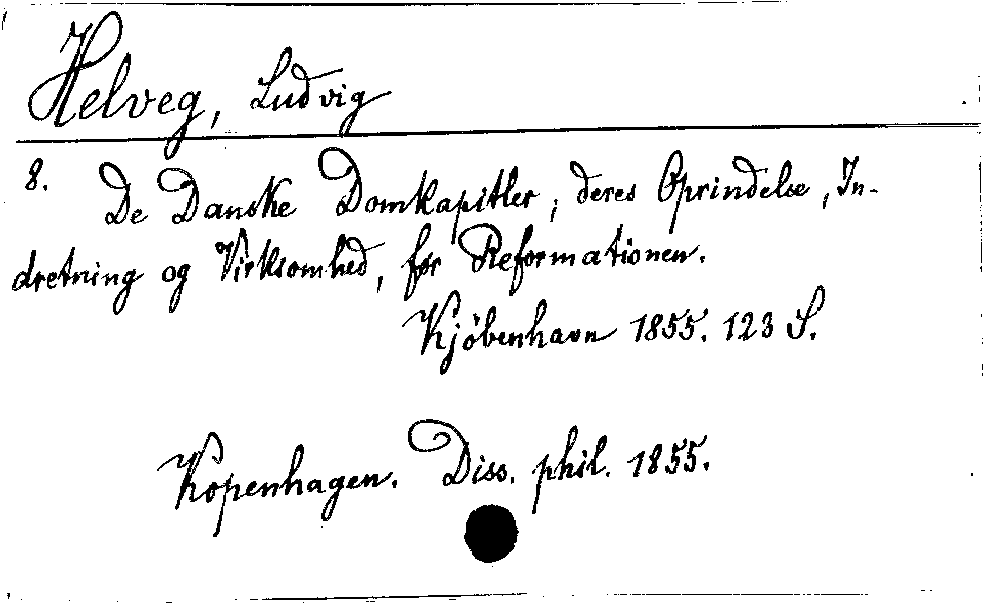 Helveg, Ludvig
8. De Danske Domkapitler, deres Oprindelse, In-
dretning og Virksomhed, før Reformationen.
Kjöbenhavn 1855. 123 S.
Kopenhagen. Diss. phil. 1855.